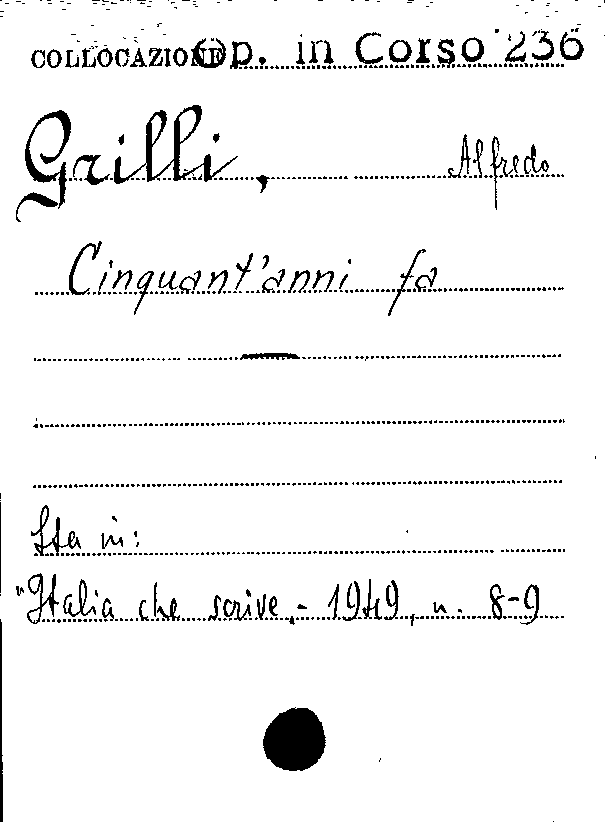 COLLOCAZIONE Op. in Corso 236
Grilli, Alfredo
Cinquant'anni fa
Sta in:
"Italia che scrive.- 1949, n. 8-9